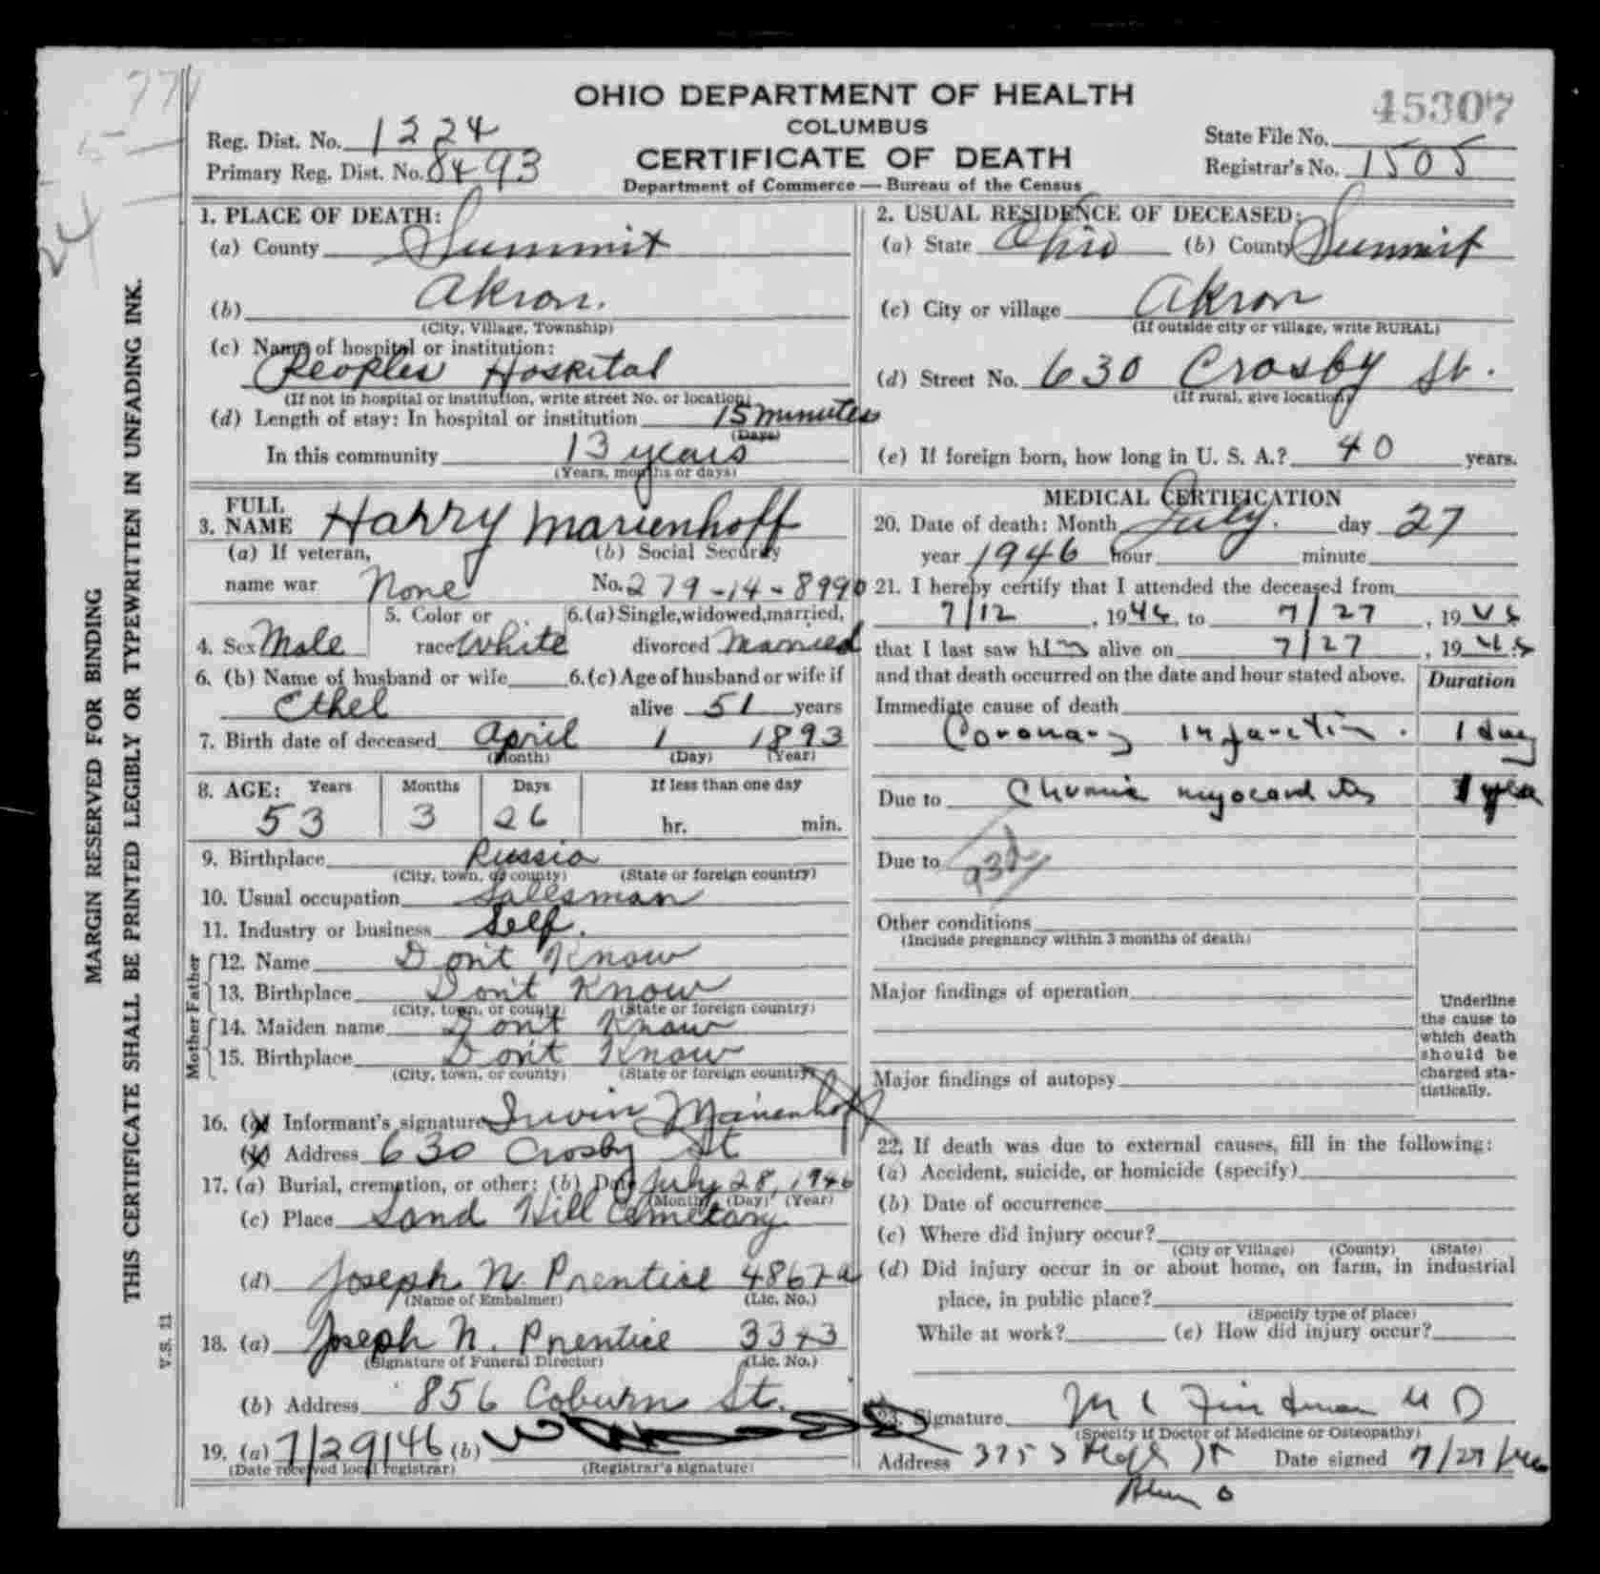 OHIO DEPARTMENT OF HEALTH
COLUMBUS
CERTIFICATE OF DEATH
Department of Commerce — Bureau of the Census
45307
Reg. Dist. No. 1224
Primary Reg. Dist. No. 8493
State File No.
Registrar's No. 1505
MARGIN RESERVED FOR BINDING
THIS CERTIFICATE SHALL BE PRINTED LEGIBLY OR TYPEWRITTEN IN UNFADING INK.
V.S. 11
1. PLACE OF DEATH:
(a) County Summit
(b) Akron.
(City, Village, Township)
(c) Name of hospital or institution:
Peoples Hospital
(If not in hospital or institution, write street No. or location)
(d) Length of stay: In hospital or institution 15 minutes
(Days)
In this community 13 years
(Years, months or days)
2. USUAL RESIDENCE OF DECEASED:
(a) State Ohio (b) County Summit
(c) City or village Akron
(If outside city or village, write RURAL)
(d) Street No. 630 Crosby St.
(If rural, give location)
(e) If foreign born, how long in U. S. A.? 40 years.
3. FULL NAME Harry Marienhoff
(a) If veteran, name war None
(b) Social Security No. 279-14-8990
4. Sex Male
5. Color or race White
6. (a) Single, widowed, married, divorced Married
6. (b) Name of husband or wife
Ethel
6. (c) Age of husband or wife if alive 51 years
7. Birth date of deceased April 1 1893
(Month) (Day) (Year)
8. AGE: Years Months Days If less than one day
53 3 26 hr. min.
9. Birthplace Russia
(City, town, or county) (State or foreign country)
10. Usual occupation Salesman
11. Industry or business Self.
Father
12. Name Don't Know
13. Birthplace Don't Know
(City, town, or county) (State or foreign country)
Mother
14. Maiden name Don't Know
15. Birthplace Don't Know
(City, town, or county) (State or foreign country)
16. (a) Informant's signature Irwin Marienhoff
Address 630 Crosby St
17. (a) Burial, cremation, or other: (b) Date July 28, 1946
(Month) (Day) (Year)
(c) Place Sand Hill Cemetary
(d) Joseph N. Prentice 4867a
(Name of Embalmer) (Lic. No.)
18. (a) Joseph N. Prentice
(Signature of Funeral Director) (Lic. No.)
(b) Address 856 Coburn St.
19. (a) 7/29/46 (b)
(Date received local registrar) (Registrar's signature)
MEDICAL CERTIFICATION
20. Date of death: Month July. day 27
year 1946 hour minute
21. I hereby certify that I attended the deceased from
7/12, 1946 to 7/27, 19
that I last saw him alive on 7/27, 19
and that death occurred on the date and hour stated above.
Duration
Immediate cause of death
Coronary infarction. 1 day
Due to Chronic myocarditis 1 year
Due to 93d
Other conditions
(Include pregnancy within 3 months of death)
Major findings of operation
Major findings of autopsy
Underline the cause to which death should be charged statistically.
22. If death was due to external causes, fill in the following:
(a) Accident, suicide, or homicide (specify)
(b) Date of occurrence
(c) Where did injury occur?
(City or Village) (County) (State)
(d) Did injury occur in or about home, on farm, in industrial
place, in public place?
(Specify type of place)
While at work? (e) How did injury occur?
23. Signature M D
(Specify if Doctor of Medicine or Osteopathy)
Address 375 S St Date signed 7/27/46
Akron O